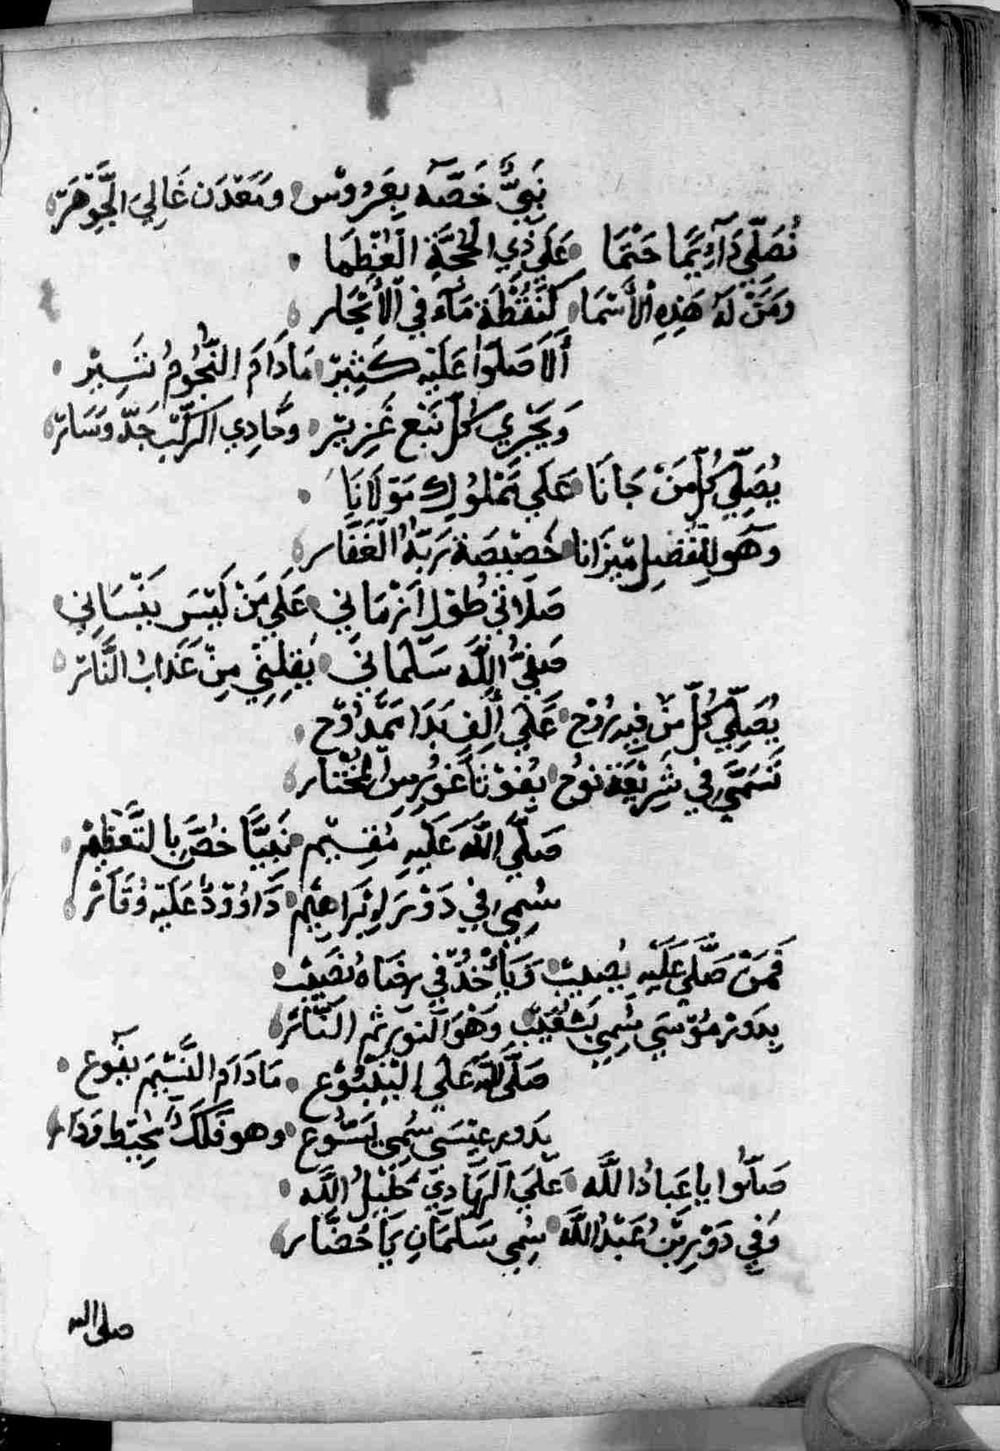 نَبِيٌّ خَصَّهُ بِعَرُوسْ وَمَعْدَن غَالِيَ الْجَوْهَرْ
نُصَلِّي دَآئِمًا حَتْمَا عَلَي ذِي الْحُجَّةِ الْعُظْمَا
وَمَنْ لَهُ هَذِهِ الأَسْمَا كَنُقْطَة مَآء فِي الأَبْحَار
أَلَا صَلُّوا عَلَيْه كَثِيرْ مَادَامَ النُّجُومُ تَسِيرْ
وَيَجْرِي كُلّ نَبْع غَزِيرْ وحَادِي الرَّكْب جَدّ وَسَارْ
يُصَلِّي كُلّ مَنْ جَانَا عَلَي مَمْلُوك مَوْلَانَا
وهو لِلْفَضْل مِيزَانا خَصِيصَة رَبّهُ الْغَفَّار
صَلَاتِي طُول اَزْمَانِي عَلَي مَنْ لَيْسَ يَنْسَانِي
صَفِيُّ اللَّه سَلْمَانِي يَقِلْنِي مِنْ عَذَاب النَّارْ
يُصَلِّي كُلّ مَنْ فِيه رُوح عَلَي أَلِف بَدَا مَمْدُوح
تَسَمَّى فِي شَرِيْعَة نُوح المُخْتَار
صَلَّي اللَّه عَلَيهِ مُقِيْم نَبِيًّا خُصَّ بِالتَّعْظِيْم
سُمِي فِي دَوْر لِإِبْرَاهِيْم دَاوُودْ عَلَيْه وُقَارْ
فَمَنْ صَلَّي عَلَيْهِ يُصِيب وَيَأْخُذْ فِي رِضَاهُ نَصِيْب
بِدَوْر مُوْسَي سُمِي بشُعَيْبْ وَهْوَ النُّور ثم النَّارْ
صَلَّي اللَّه عَلَي الْيَنْبُوْع مَادَامَ النَّسِيْم يَفُوع
بِدَور عِيْسَى سُمِي يَسُّوع وهو فَلَك مُحِيْط وَدَار
صَلُّوا يا عِبَادُ اللَّه عَلَي الْهَادِي خَلِيْلُ اللَّه
وَفِي دَوْرِ بْنُ عَبْدُ اللَّه سُمِي سَلْمَان يَا حُضَّار
صلى الله